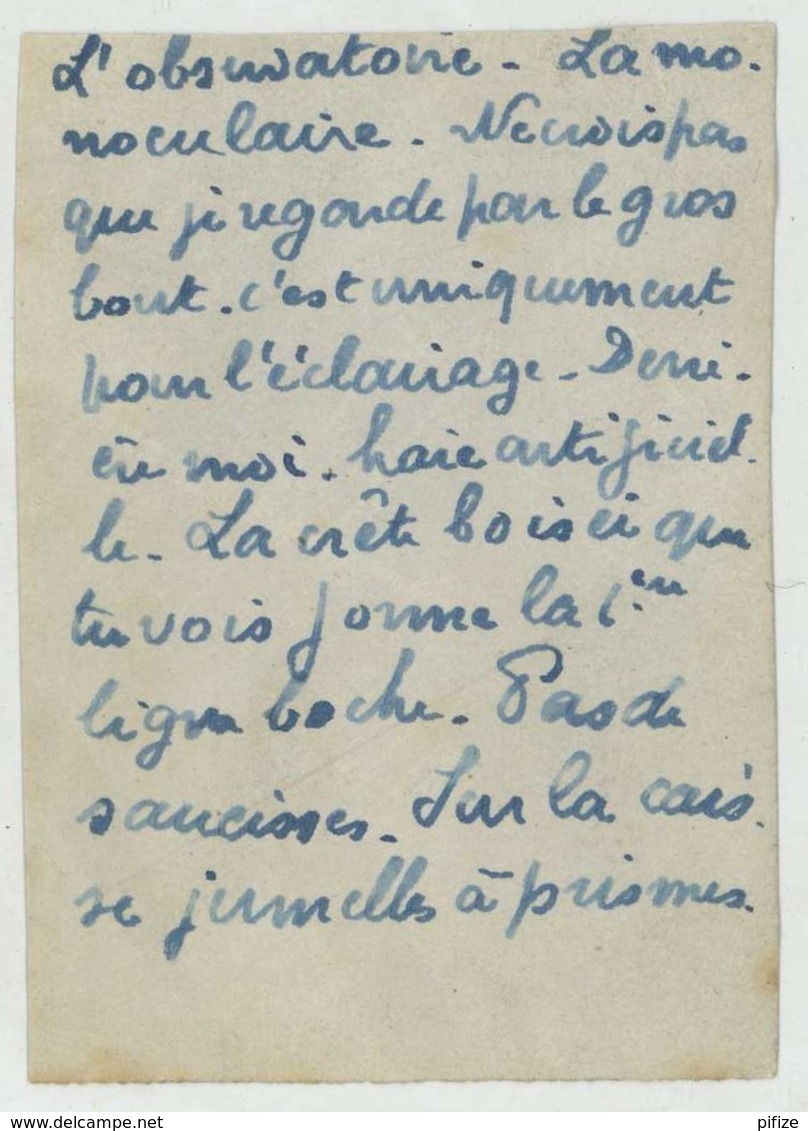 L'observatoire - La mo-
noculaire. Ne crois pas
que je regarde par le gros
bout. c'est uniquement
pour l'éclairage - Derri-
ère moi. haie artificiel-
le - La crête boisée que
tu vois forme la 1ère
ligne boche. Pas de
saucisses. Sur la cais-
se jumelles à prismes.
pifize